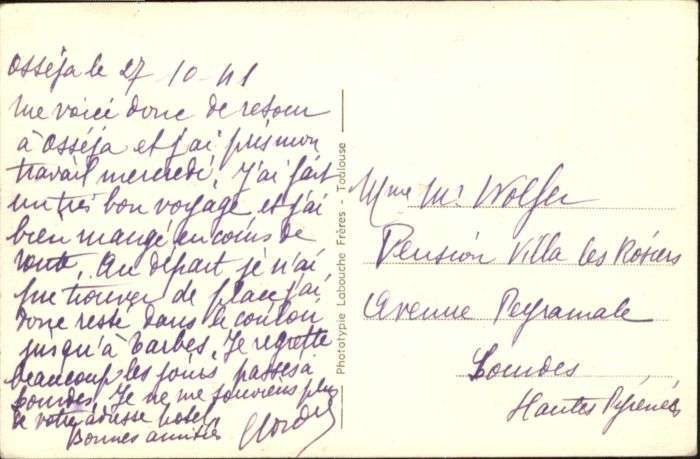 Osséja le 27 10-41
me voici donc de retour
à Osséja et j'ai pris mon
travail mercredi, j'ai fait
un très bon voyage et j'ai
bien mangé en cours de
route. Au départ je n'ai
pu trouver de place j'ai
donc resté dans le couloir
jusqu'à Tarbes. Je regrette
beaucoup les jours passés à
Lourdes. Je ne me souviens plus
de votre adresse hotel
Bonnes amitiés
Phototypie Labouche Frères - Toulouse
Mme Mr Wolfer
Pension Villa les Rosiers
Avenue Peyramale
Lourdes
Hautes Pyrénées